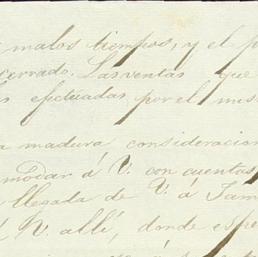 malos tiempos, y el
cerrado. Las ventas que
efectuadas por el mis
a madura consideracion
modar á V. con cuentas,
llegada de V. á Jam
V. allí, donde espe